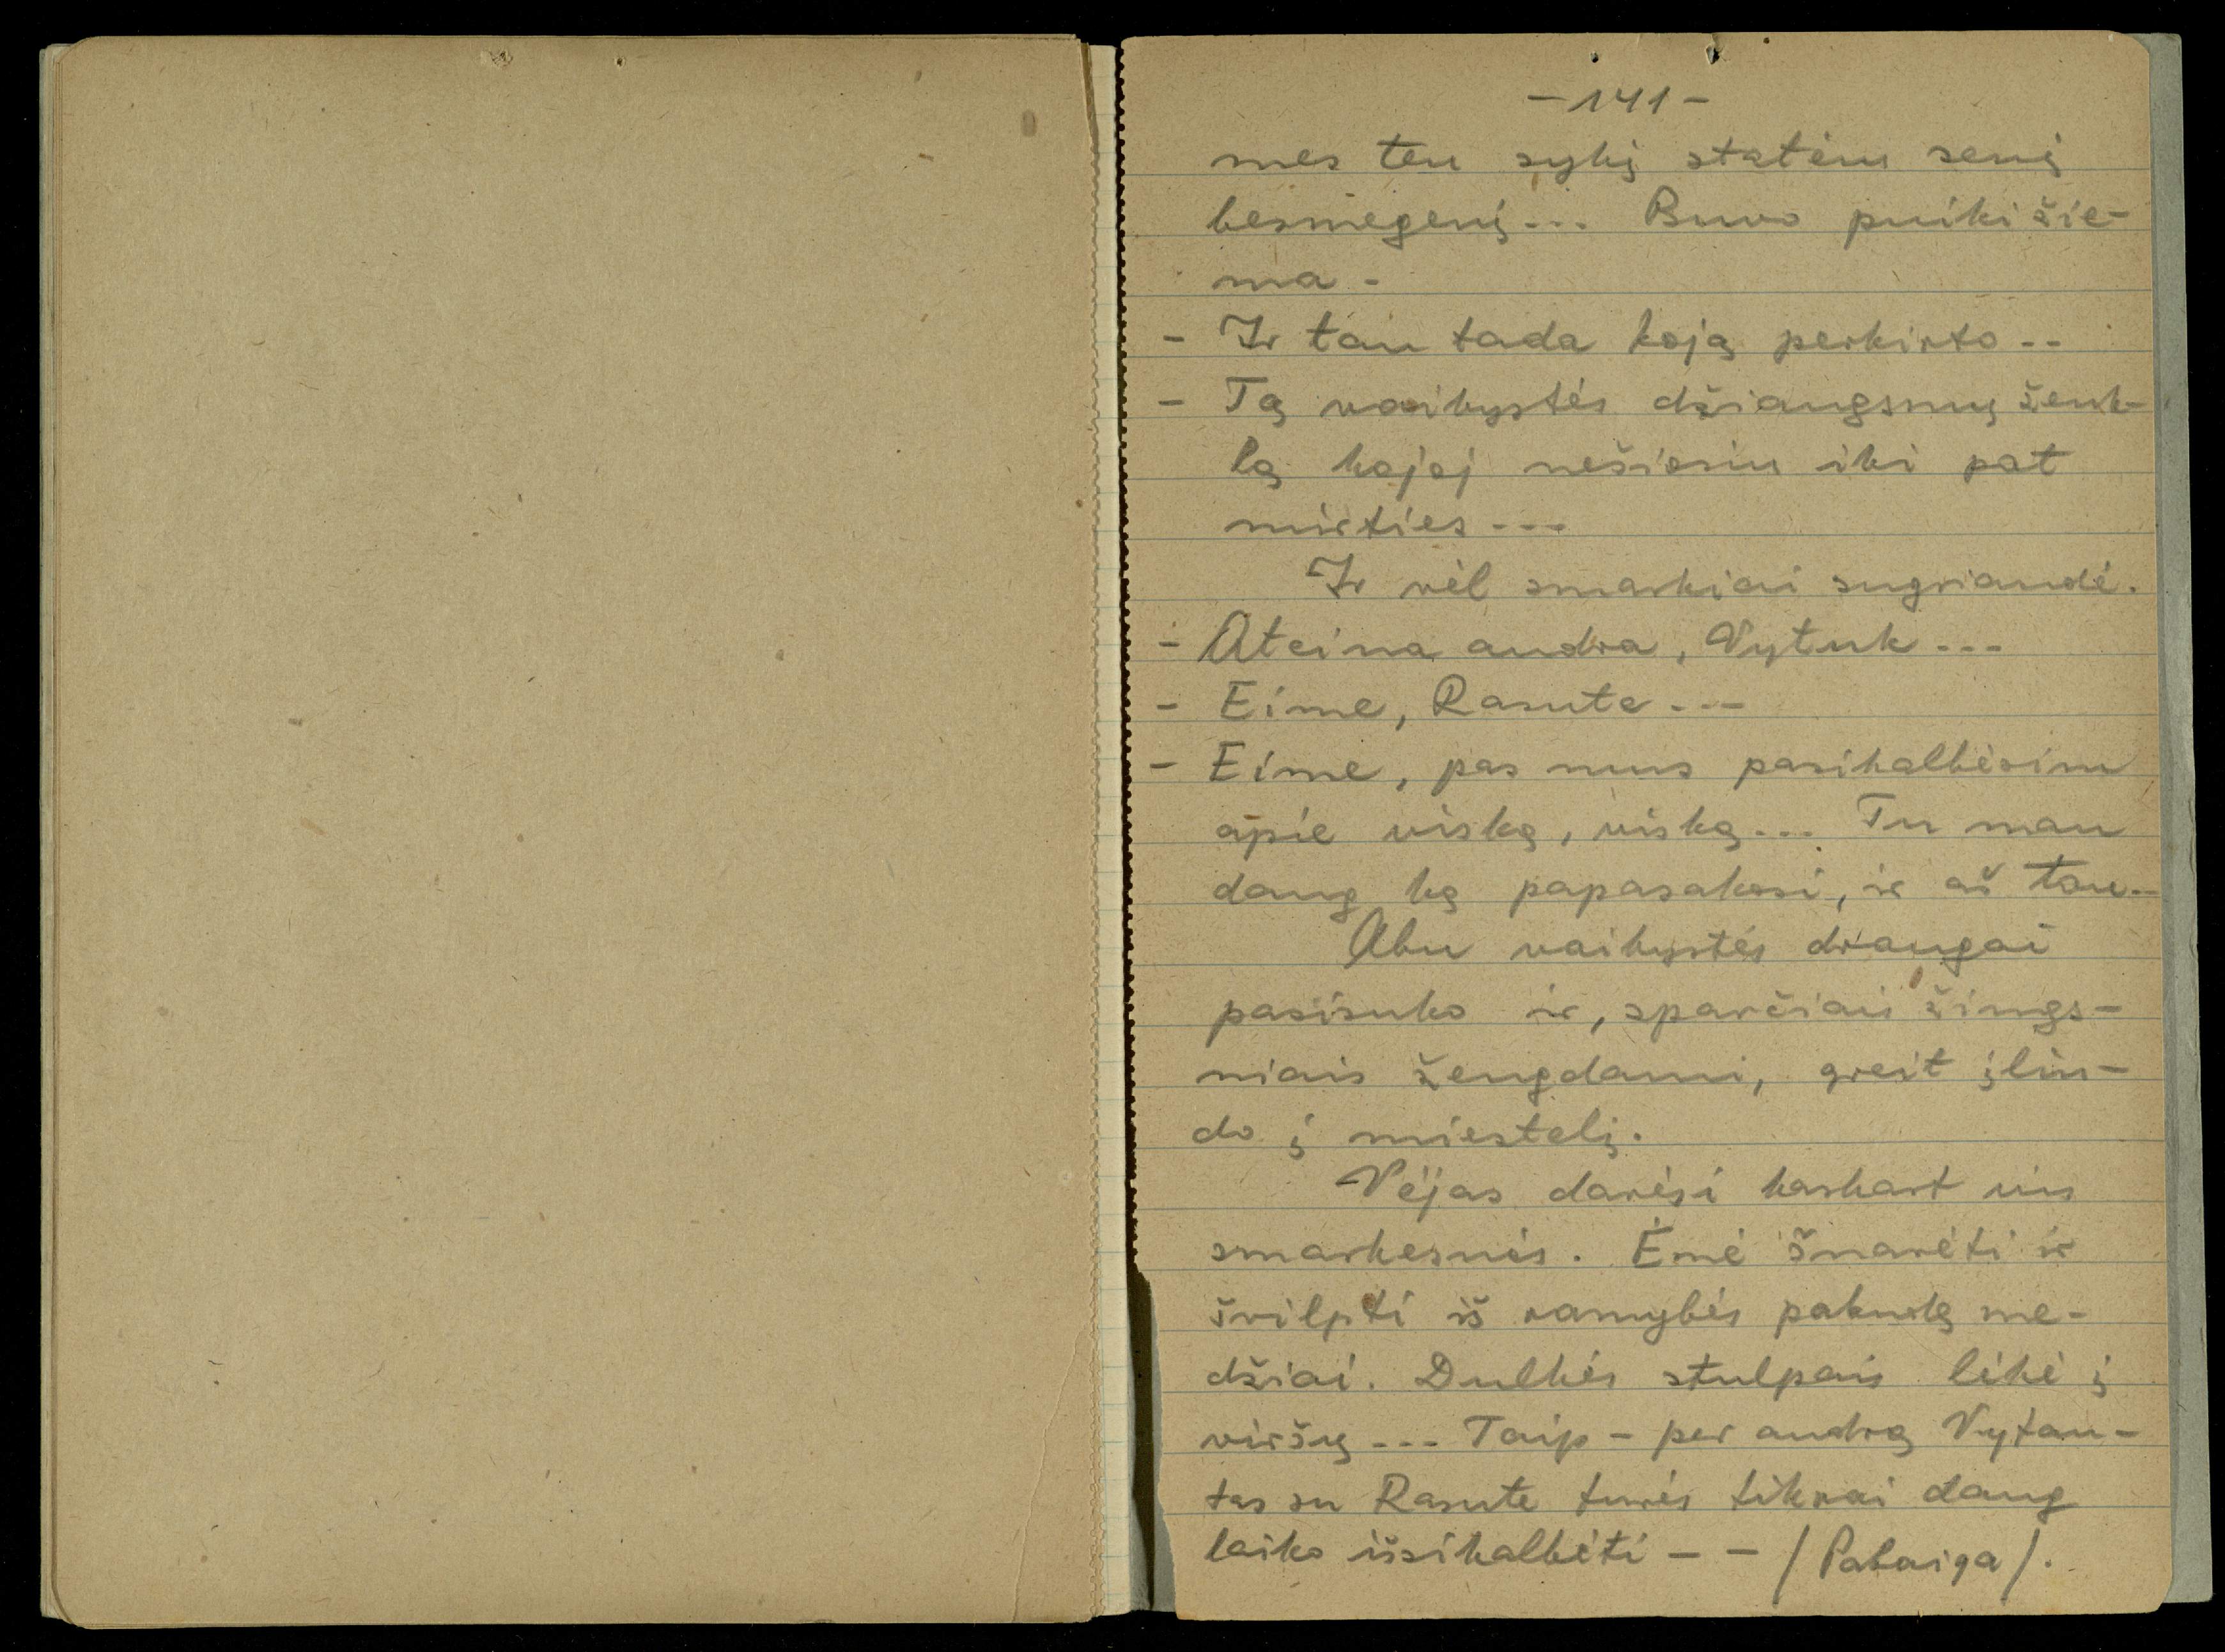 -141-
mes ten sykį statėm senį
besmegenį... Buvo puiki žie-
ma -
- Ir tau tada koją perkirto..
- Tą vaikystės džiaugsmų ženk-
lą kojoj nešiosiu iki pat
mirties ---
Ir vėl smarkiai sugriaudė.
- Ateina audra, Vytuk ---
- Eime, Rasute ---
- Eime, pas mus pasikalbėsim
apie viską, viską... Tu man
daug ką papasakosi, ir aš tau--
Abu vaikystės draugai
pasisuko ir, sparčiais žings-
niais žengdami, greit įlin-
do į miestelį.
Vėjas darėsi kaskart vis
smarkesnis. Ėmė šnarėti ir
švilpti iš ramybės pakudę me-
džiai. Dulkės stulpais lėkė į
viršų --- Taip - per audrą Vytau-
tas su Rasute turės tikrai daug
laiko išsikalbėti - - /Pabaiga/.